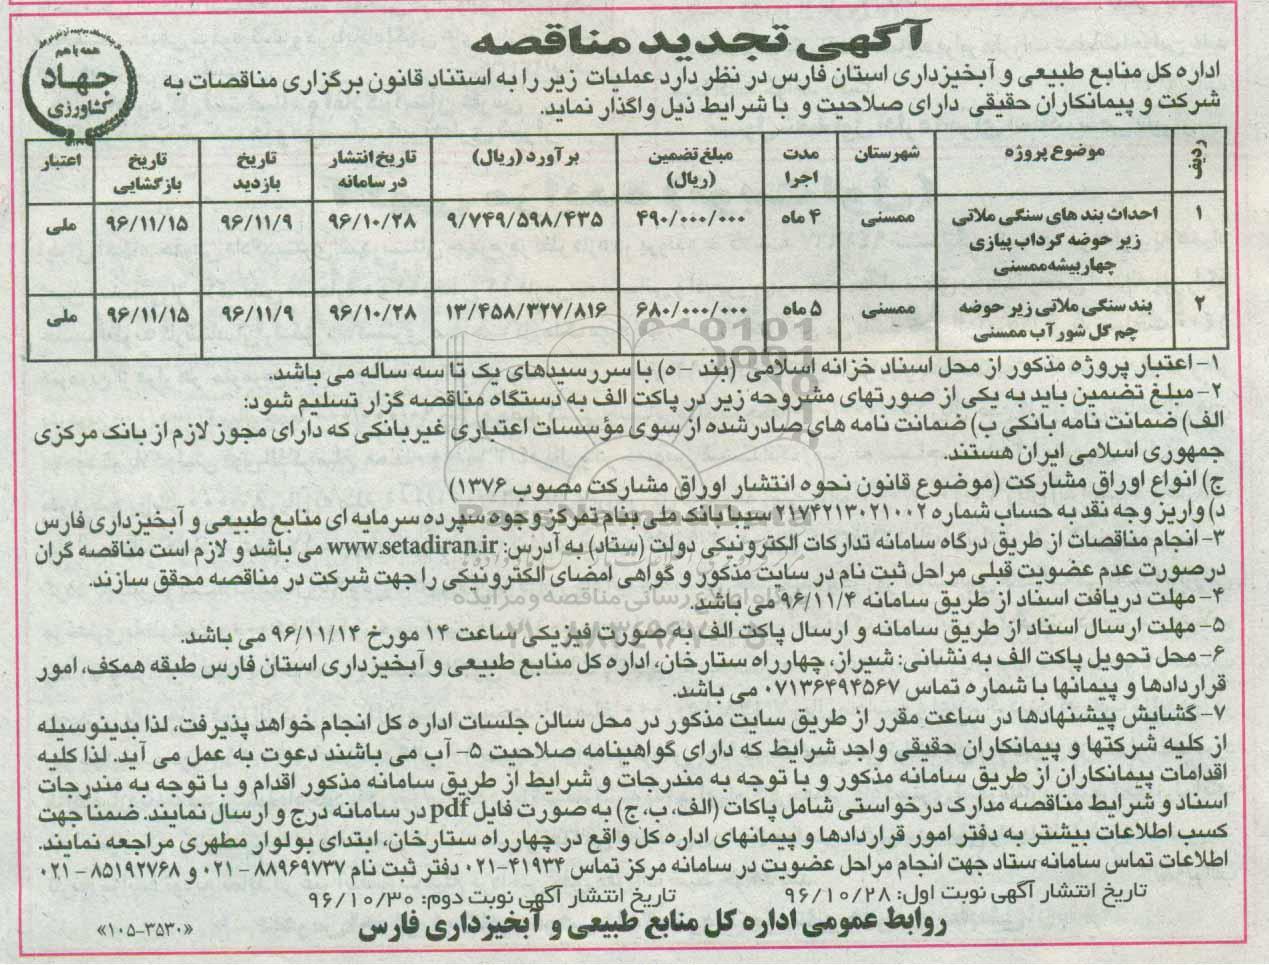 آگهی تجدید مناقصه
همه با هم
جهاد
کشاورزی
اداره کل منابع طبیعی و آبخیزداری استان فارس در نظر دارد عملیات زیر را به استناد قانون برگزاری مناقصات به
شرکت و پیمانکاران حقیقی دارای صلاحیت و با شرایط ذیل واگذار نماید.
ردیف | موضوع پروژه | شهرستان | مدت اجرا | مبلغ تضمین (ریال) | برآورد (ریال) | تاریخ انتشار در سامانه | تاریخ بازدید | تاریخ بازگشایی | اعتبار
۱ | احداث بند های سنگی ملاتی زیر حوضه گرداب پیازی چهاربیشه ممسنی | ممسنی | ۴ ماه | ۴۹۰/۰۰۰/۰۰۰ | ۹/۷۴۹/۵۹۸/۴۳۵ | ۹۶/۱۰/۲۸ | ۹۶/۱۱/۹ | ۹۶/۱۱/۱۵ | ملی
۲ | بند سنگی ملاتی زیر حوضه چم گل شور آب ممسنی | ممسنی | ۵ ماه | ۶۸۰/۰۰۰/۰۰۰ | ۱۳/۴۵۸/۳۲۷/۸۱۶ | ۹۶/۱۰/۲۸ | ۹۶/۱۱/۹ | ۹۶/۱۱/۱۵ | ملی
۱- اعتبار پروژه مذکور از محل اسناد خزانه اسلامی (بند - ه) با سررسیدهای یک تا سه ساله می باشد.
۲- مبلغ تضمین باید به یکی از صورتهای مشروحه زیر در پاکت الف به دستگاه مناقصه گزار تسلیم شود:
الف) ضمانت نامه بانکی ب) ضمانت نامه های صادرشده از سوی مؤسسات اعتباری غیربانکی که دارای مجوز لازم از بانک مرکزی
جمهوری اسلامی ایران هستند.
ج) انواع اوراق مشارکت (موضوع قانون نحوه انتشار اوراق مشارکت مصوب ۱۳۷۶)
د) واریز وجه نقد به حساب شماره ۲۱۷۴۲۱۳۰۲۱۰۰۲ سیبا بانک ملی بنام تمرکز وجوه سپرده سرمایه ای منابع طبیعی و آبخیزداری فارس
۳- انجام مناقصات از طریق درگاه سامانه تدارکات الکترونیکی دولت (ستاد) به آدرس: www.setadiran.ir می باشد و لازم است مناقصه گران
درصورت عدم عضویت قبلی مراحل ثبت نام در سایت مذکور و گواهی امضای الکترونیکی را جهت شرکت در مناقصه محقق سازند.
۴- مهلت دریافت اسناد از طریق سامانه ۹۶/۱۱/۴ می باشد.
۵- مهلت ارسال اسناد از طریق سامانه و ارسال پاکت الف به صورت فیزیکی ساعت ۱۴ مورخ ۹۶/۱۱/۱۴ می باشد.
۶- محل تحویل پاکت الف به نشانی: شیراز، چهارراه ستارخان، اداره کل منابع طبیعی و آبخیزداری استان فارس طبقه همکف، امور
قراردادها و پیمانها با شماره تماس ۰۷۱۳۶۴۹۴۵۶۷ می باشد.
۷- گشایش پیشنهادها در ساعت مقرر از طریق سایت مذکور در محل سالن جلسات اداره کل انجام خواهد پذیرفت، لذا بدینوسیله
از کلیه شرکتها و پیمانکاران حقیقی واجد شرایط که دارای گواهینامه صلاحیت ۵- آب می باشند دعوت به عمل می آید. لذا کلیه
اقدامات پیمانکاران از طریق سامانه مذکور و با توجه به مندرجات و شرایط از طریق سامانه مذکور اقدام و با توجه به مندرجات
اسناد و شرایط مناقصه مدارک درخواستی شامل پاکات (الف، ب، ج) به صورت فایل pdf در سامانه درج و ارسال نمایند. ضمنا جهت
کسب اطلاعات بیشتر به دفتر امور قراردادها و پیمانهای اداره کل واقع در چهارراه ستارخان، ابتدای بولوار مطهری مراجعه نمایند.
اطلاعات تماس سامانه ستاد جهت انجام مراحل عضویت در سامانه مرکز تماس ۴۱۹۳۴-۰۲۱ دفتر ثبت نام ۸۸۹۶۹۷۳۷ - ۰۲۱ و ۸۵۱۹۲۷۶۸ - ۰۲۱
تاریخ انتشار آگهی نوبت اول: ۹۶/۱۰/۲۸ تاریخ انتشار آگهی نوبت دوم: ۹۶/۱۰/۳۰
روابط عمومی اداره کل منابع طبیعی و آبخیزداری فارس
«۱۰۵-۳۵۳۰»